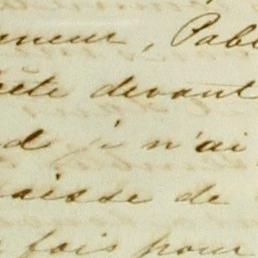 neur, Pabl
ête devant
d je n'ai
aisse de
fois pour